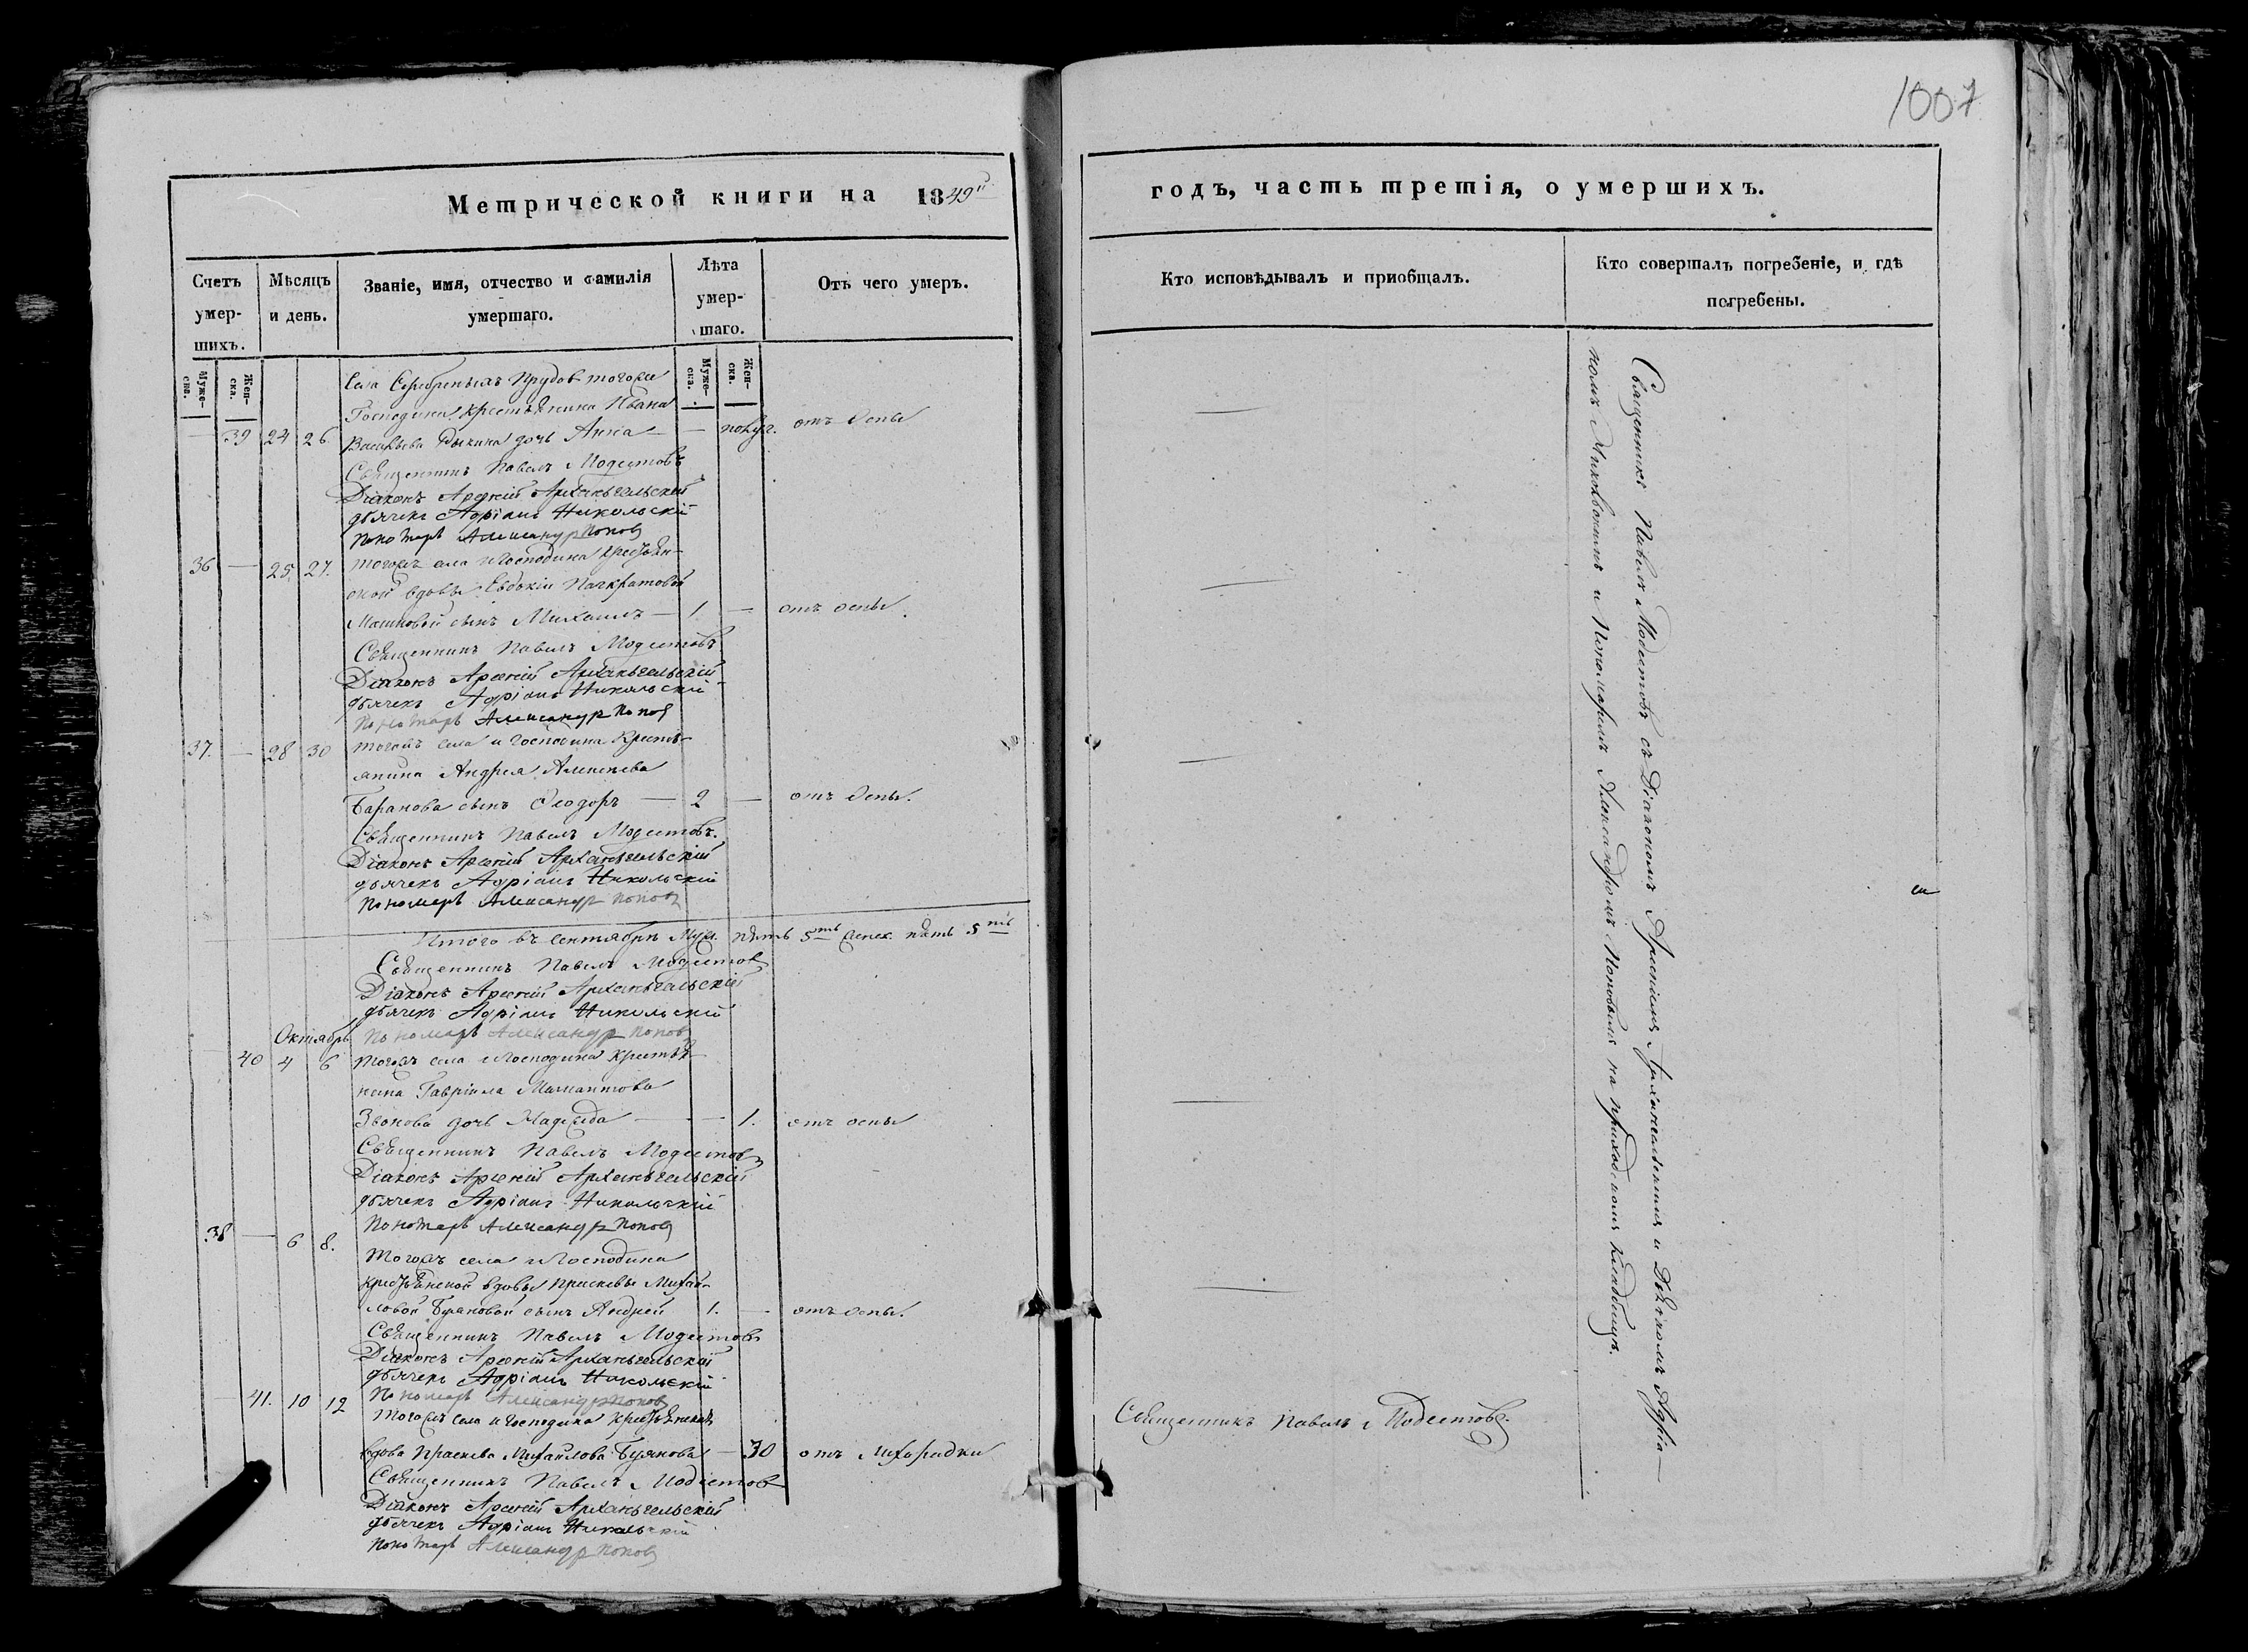 1007
Метрической книги на 1849й
годъ, часть третія, о умершихъ.
Счетъ умер-шихъ.
Мѣсяцъ и день.
Званіе, имя, отчество и фамилія умершаго.
Лѣта умер-шаго.
Отъ чего умеръ.
Кто исповѣдывалъ и приобщалъ.
Кто совершалъ погребеніе, и гдѣ погребены.
Муже-ска.
Жен-ска.
Муже-ска.
Жен-ска.
Села Серебреныхъ Прудовъ тогоже
Господина крестьянина Ивана
— 39 24 26 Васильева дочь Анна — — полуг. отъ оспы
Священникъ Павелъ Модестовъ
Діаконъ Арсеній Архангельскій
дьячекъ Адріанъ Никольскій
Пономарь Александръ Поповъ
36 — 25 27. тогожъ села и Господина крестьян-
ской вдовы Евдокіи Панкратовой
сынъ Михаилъ — 1. — отъ оспы
Священникъ Павелъ Модестовъ
Діаконъ Арсеній Архангельскій
дьячекъ Адріанъ Никольскій
Пономарь Александръ Поповъ
37. — 28 30 тогожъ села и Господина кресть-
янина Андрея Алексѣева
Баранова сынъ Ѳеодоръ — 2 — отъ оспы.
Священникъ Павелъ Модестовъ.
Діаконъ Арсеній Архангельскій
дьячекъ Адріанъ Никольскій
Пономарь Александръ Поповъ
Итого въ сентябрѣ муж. пять 5ть женск. пять 5ть
Священникъ Павелъ Модестовъ
Діаконъ Арсеній Архангельскій
дьячекъ Адріанъ Никольскій
Октябрь Пономарь Александръ Поповъ
40 4 6 тогожъ села и Господина крестья-
нина Гавріила Мамантова
Звонова дочь Надежда — — 1. отъ оспы
Священникъ Павелъ Модестовъ
Діаконъ Арсеній Архангельскій
дьячекъ Адріанъ Никольскій
Пономарь Александръ Поповъ
38 — 6 8.
тогожъ села и Господина
крестьянской вдовы Прасковьи Михай-
ловой Буяновой сынъ Андрей 1. — отъ оспы.
Священникъ Павелъ Модестовъ
Діаконъ Арсеній Архангельскій
дьячекъ Адріанъ Никольскій
— 41. 10 12 Пономарь Александръ Поповъ
тогожъ села и Господина крестьянская
вдова Праскева Михайлова Буянова — 30 отъ лихорадки
Священникъ Павелъ Модестовъ
Діаконъ Арсеній Архангельскій
дьячекъ Адріанъ Никольскій
Пономарь Александръ Поповъ
Священникъ Павелъ Модестовъ.
Священникъ Павелъ Модестовъ съ Діакономъ Арсеніемъ Архангельскимъ и Дьячкомъ Адріа-
номъ Никольскимъ и Пономаремъ Александромъ Поповымъ на приходскомъ кладбищѣ.